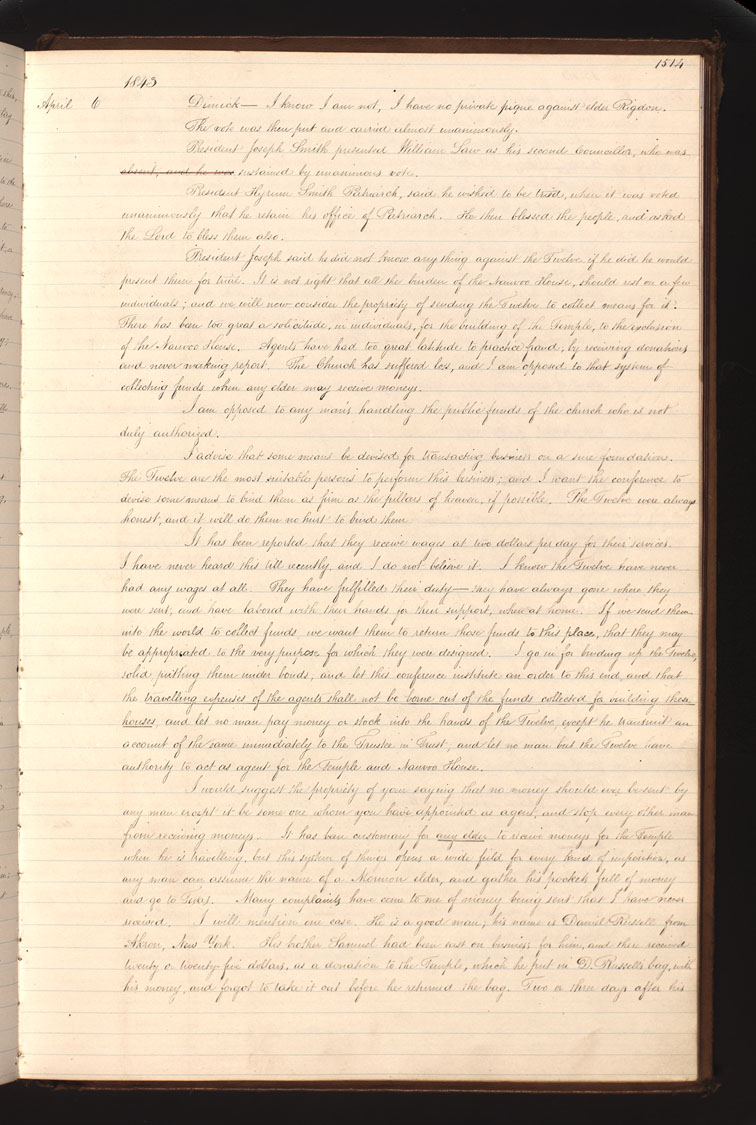 1514
1843
April 6 Dimick— I know I am not, I have no private pique against elder Rigdon.
The vote was then put and carried almost unanimously.
President Joseph Smith presented William Law as his second Councillor, who was
absent, and he was sustained by unanimous vote.
President Hyrum Smith Patriarch, said he wished to be tried, when it was voted
unanimously that he retain his office of Patriarch. He then blessed the people, and asked
the Lord to bless them also.
President Joseph said he did not know any thing against the Twelve, if he did he would
present them for trial. It is not right that all the burden of the Nauvoo House, should rest on a few
individuals; and we will now consider the propriety of sending the Twelve to collect means for it.
There has been too great a solicitude, in individuals, for the building of the Temple, to the exclusion
of the Nauvoo House. Agents have had too great latitude to practice fraud, by receiving donations
and never making report. The Church has suffered loss, and I am opposed to that system of
collecting funds when any elder may receive moneys.
I am opposed to any man's handling the public funds of the church who is not
duly authorized.
I advise that some means be devised for transacting business on a sure foundation.
The Twelve are the most suitable persons to perform this business; and I want the conference to
devise some means to bind them as firm as the pillars of heaven, if possible. The Twelve were always
honest, and it will do them no hurt to bind them.
It has been reported that they receive wages at two dollars per day for their services.
I have never heard this till recently, and I do not believe it. I know the Twelve have never
had any wages at all. They have fulfilled their duty— they have always gone where they
were sent, and have labored with their hands for their support, when at home. If we send them
into the world to collect funds, we want them to return those funds to this place, that they may
be appropriated to the very purpose for which they were designed. I go in for binding up the Twelve,
solid, putting them under bonds; and let this conference institute an order to this end, and that
the travelling expenses of the agents shall not be borne out of the funds collected for building these
houses, and let no man pay money or stock into the hands of the Twelve, except he transmit an
account of the same immediately to the Trustee in Trust; and let no man but the Twelve have
authority to act as agent for the Temple and Nauvoo House.
I would suggest the propriety of your saying that no money should ever be sent by
any man except it be some one whom you have appointed as agent, and stop every other man
from receiving moneys. It has been customary for any elder to receive moneys for the Temple
when he is travelling, but this system of things opens a wide field for every kind of imposition, as
any man can assume the name of a Mormon elder, and gather his pockets full of money
and go to Texas. Many complaints have come to me of money being sent that I have never
received. I will mention one case. He is a good man; his name is Daniel Russell from
Akron, New York. His brother Samuel had been east on business for him, and there received
twenty or twenty-five dollars, as a donation to the Temple, which he put in D. Russell's bag, with
his money, and forgot to take it out before he returned the bag. Two or three days after his